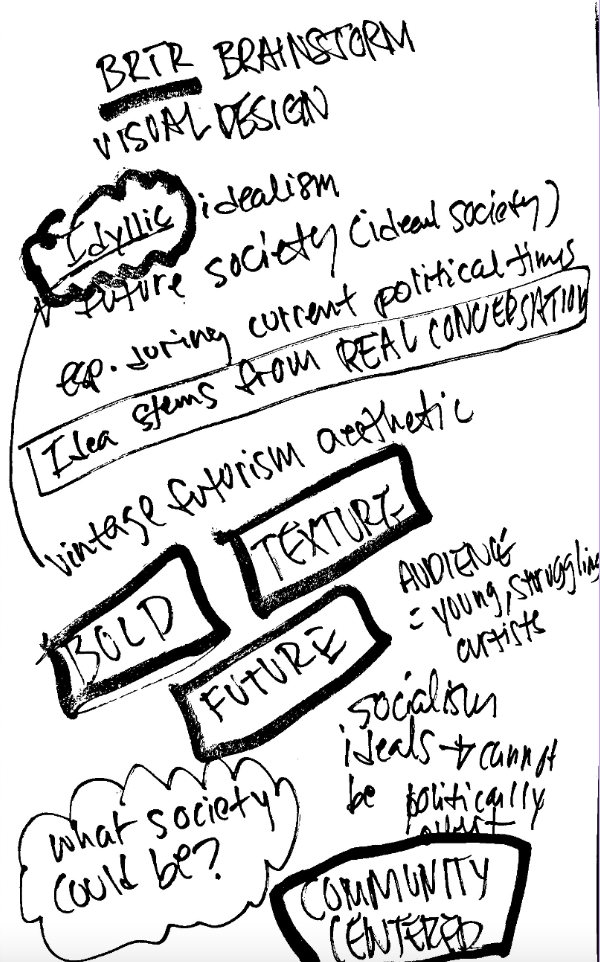 BRTR BRAINSTORM
VISUAL DESIGN
Idyllic idealism
future society (ideal society)
esp. during current political times
Idea stems from REAL CONVERSATION
vintage futurism aesthetic
TEXTURE
BOLD
FUTURE
AUDIENCE
= young, struggling
artists
socialism
ideals → cannot
be politically
overt
what society
could be?
COMMUNITY
CENTERED